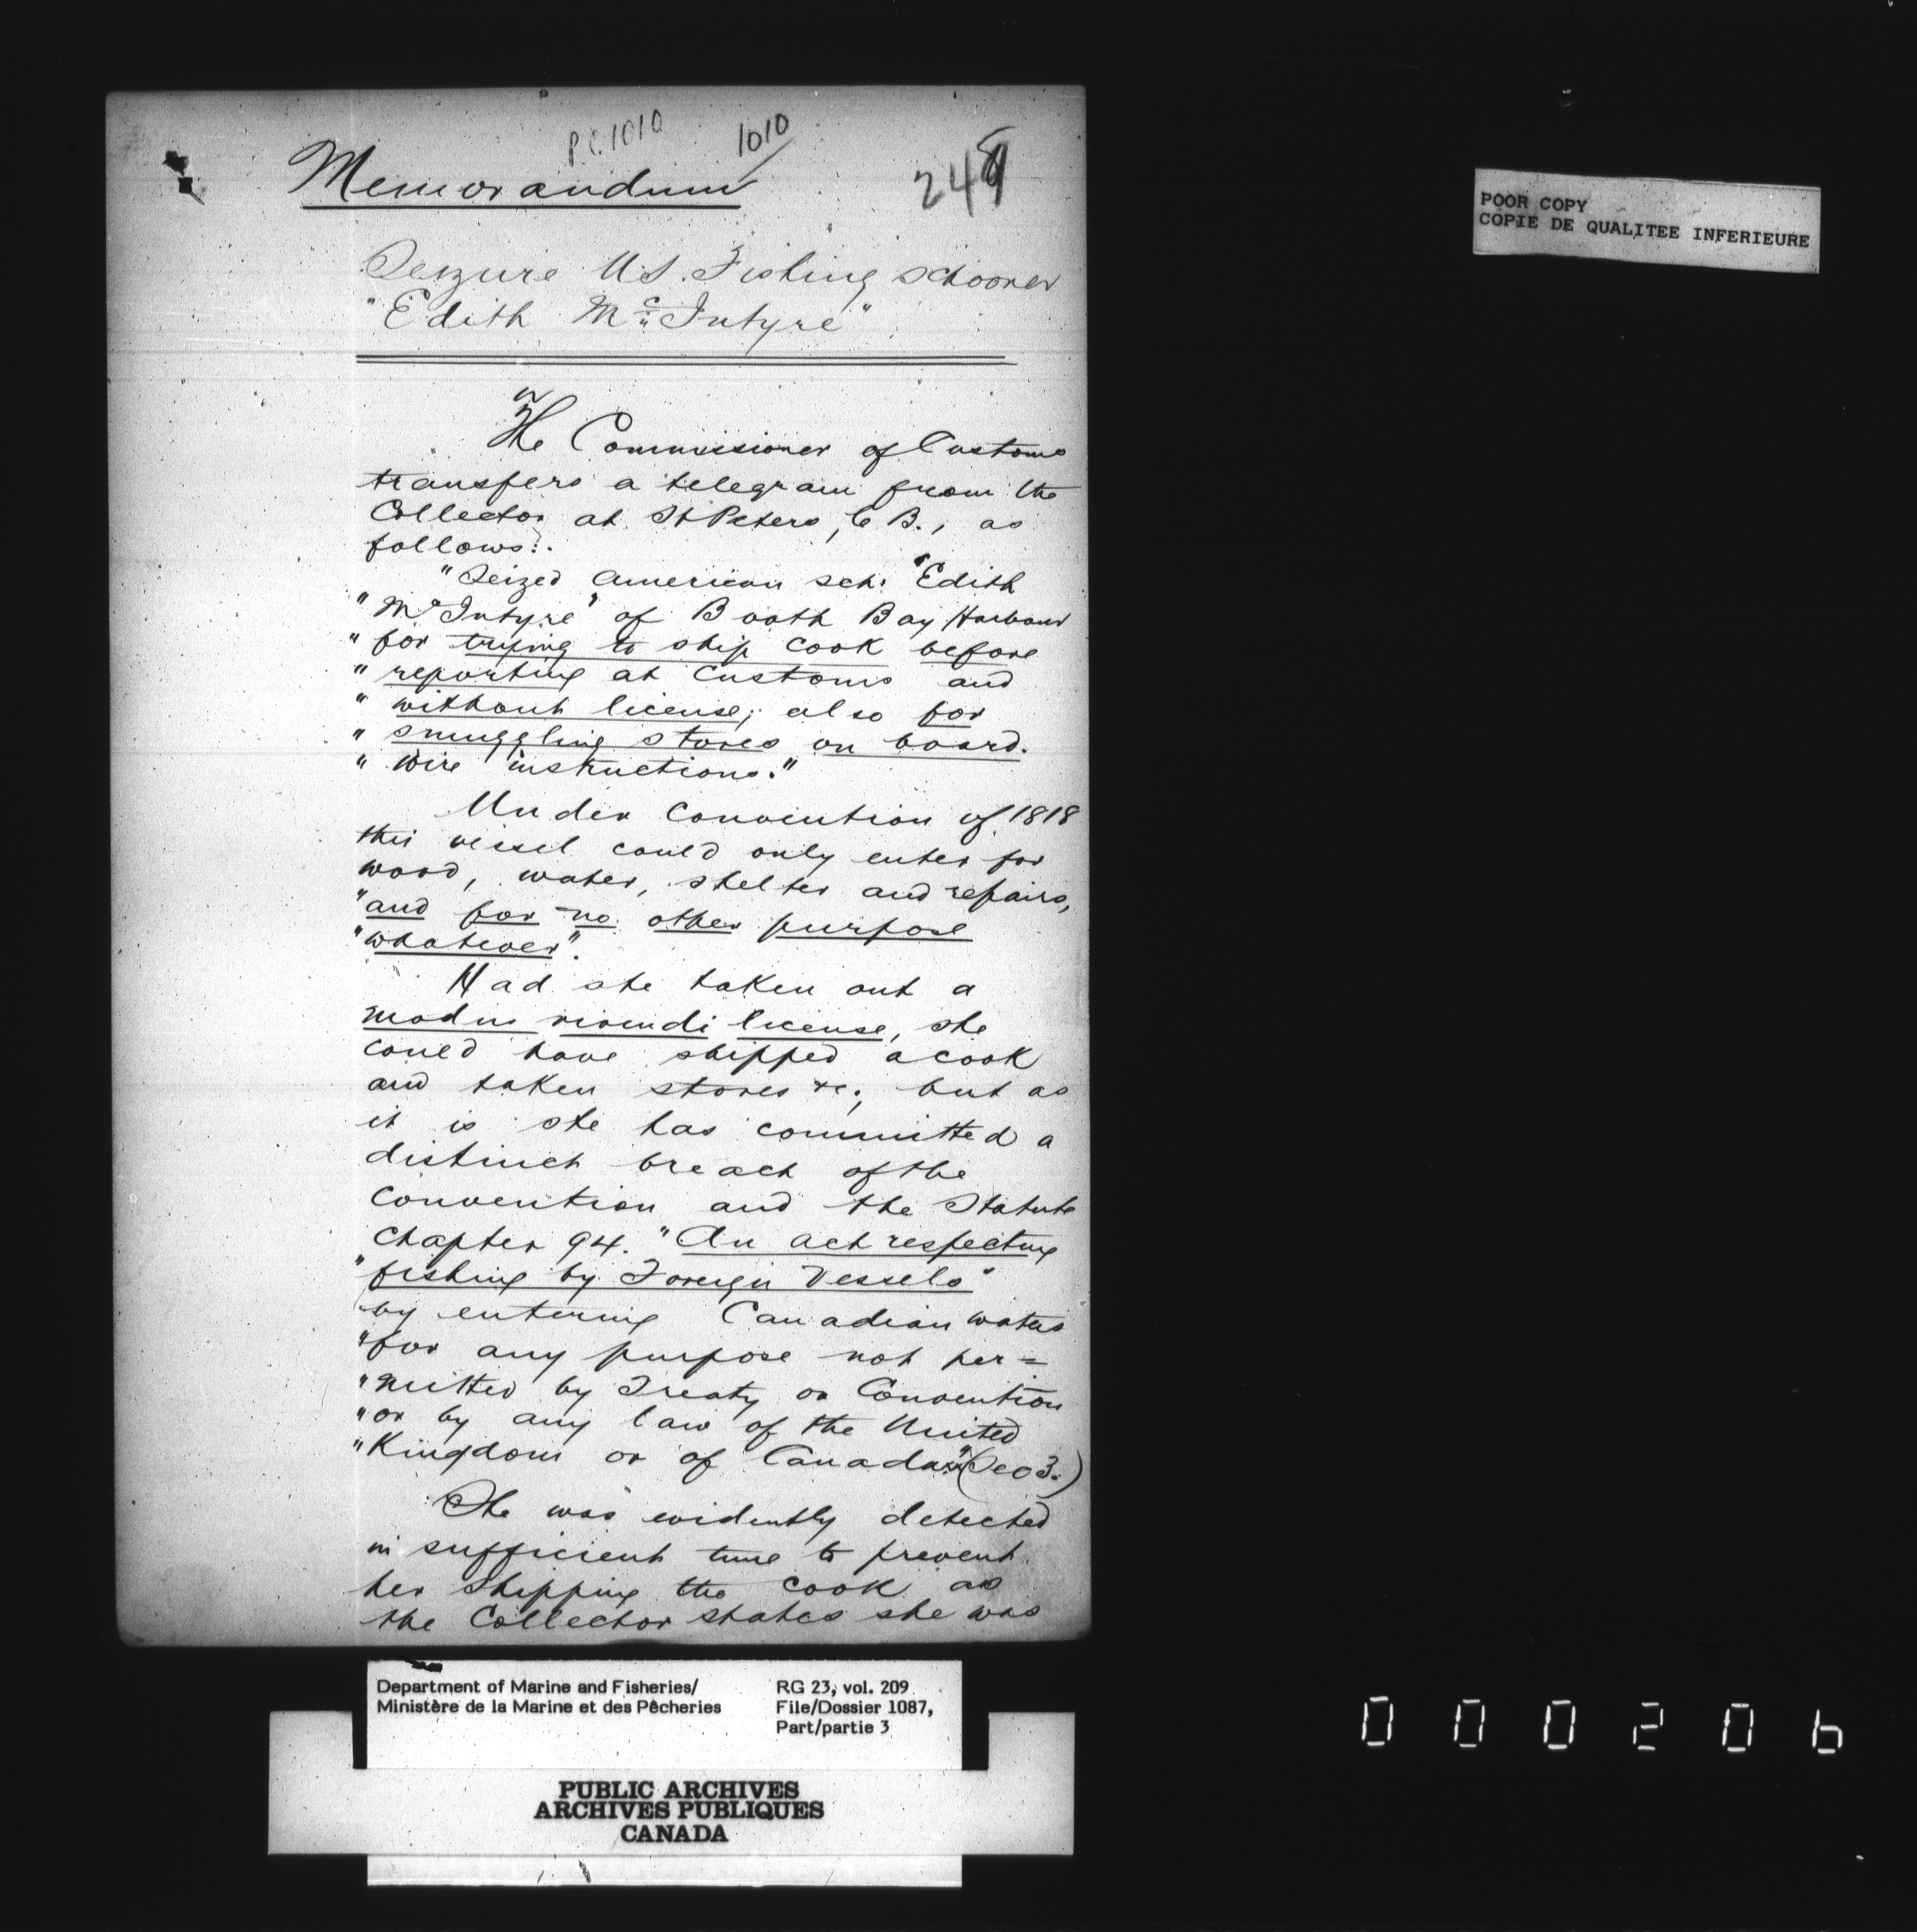 P.C. 1010
1010
248
Memorandum
Seizure U.S. Fishing schooner
"Edith McIntyre"
The Commissioner of Customs
transfers a telegram from the
Collector at St Peters, C B., as
follows:.
"Seized American sch: "Edith
"McIntyre" of Booth Bay Harbour
"for trying to ship cook before
"reporting at Customs and
"without license; also for
"smuggling stores on board.
"Wire instructions."
Under Convention of 1818
this vessel could only enter for
wood, water, shelter and repairs,
"and for no other purpose
"whatever".
Had she taken out a
modus vivendi license, she
could have shipped a cook
and taken stores &c; but as
it is she has committed a
distinct breach of the
Convention and the Statute
Chapter 94. "An act respecting
"fishing by Foreign Vessels"
by entering Canadian waters
"for any purpose not per=
"mitted by Treaty or Convention
"or by any law of the United
"Kingdom or of Canada" (Sec 3.)
She was evidently detected
in sufficient time to prevent
her shipping the cook as
the Collector states she was
POOR COPY
COPIE DE QUALITEE INFERIEURE
Department of Marine and Fisheries/
Ministère de la Marine et des Pêcheries
RG 23, vol. 209
File/Dossier 1087,
Part/partie 3
PUBLIC ARCHIVES
ARCHIVES PUBLIQUES
CANADA
000206